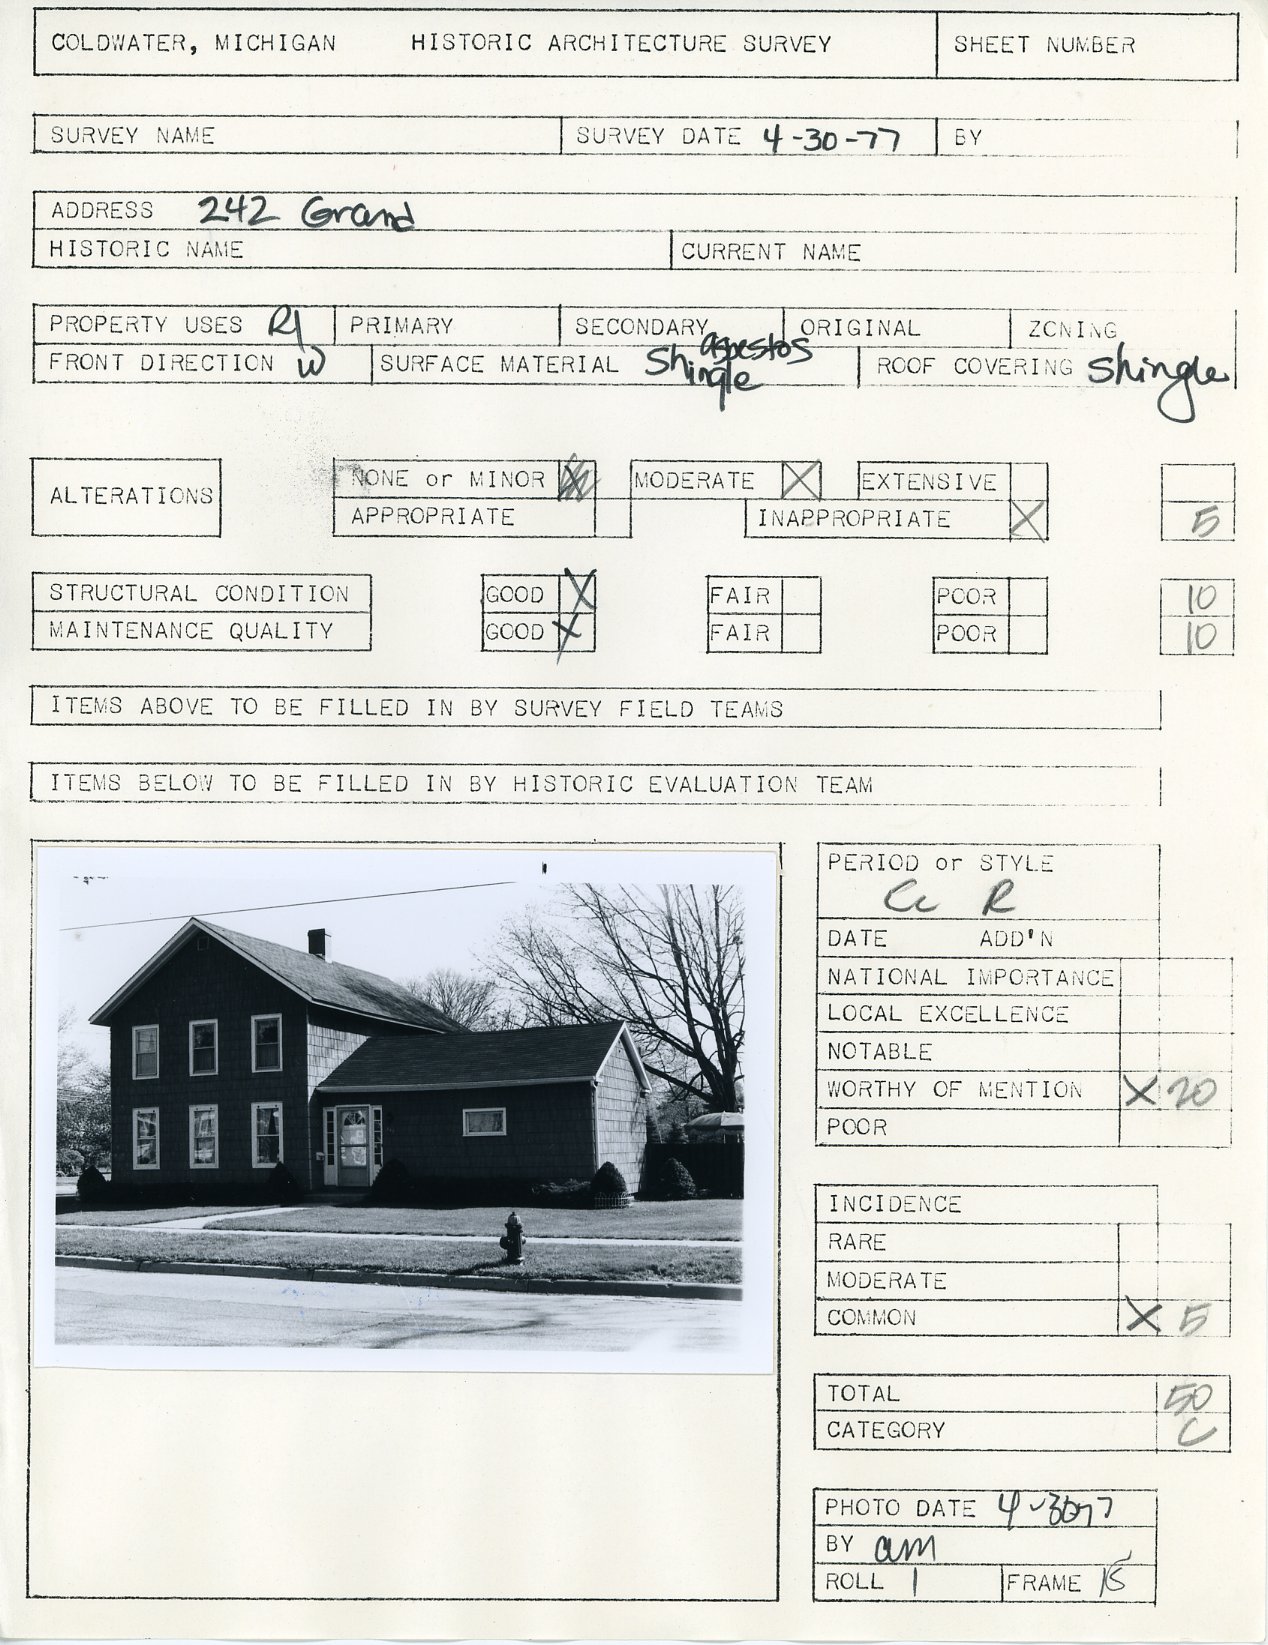 COLDWATER, MICHIGAN HISTORIC ARCHITECTURE SURVEY SHEET NUMBER
SURVEY NAME SURVEY DATE 4-30-77 BY
ADDRESS 242 Grand
HISTORIC NAME CURRENT NAME
PROPERTY USES R1 PRIMARY SECONDARY ORIGINAL ZONING
FRONT DIRECTION W SURFACE MATERIAL asbestos Shingle ROOF COVERING Shingle
ALTERATIONS NONE or MINOR MODERATE X EXTENSIVE
APPROPRIATE INAPPROPRIATE X 5
STRUCTURAL CONDITION GOOD X FAIR POOR 10
MAINTENANCE QUALITY GOOD X FAIR POOR 10
ITEMS ABOVE TO BE FILLED IN BY SURVEY FIELD TEAMS
ITEMS BELOW TO BE FILLED IN BY HISTORIC EVALUATION TEAM
PERIOD or STYLE
R
DATE ADD'N
NATIONAL IMPORTANCE
LOCAL EXCELLENCE
NOTABLE
WORTHY OF MENTION X 20
POOR
INCIDENCE
RARE
MODERATE
COMMON X 5
TOTAL 50
CATEGORY C
PHOTO DATE 4-30-77
BY am
ROLL 1 FRAME 15